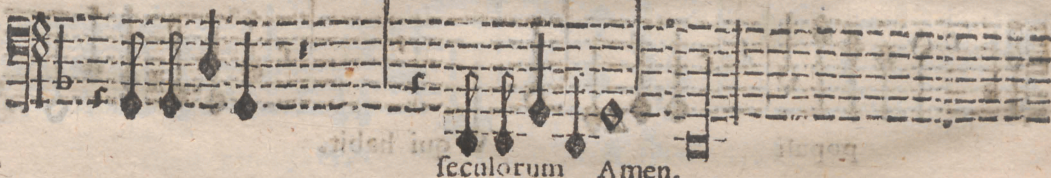 ſeculorum Amen.